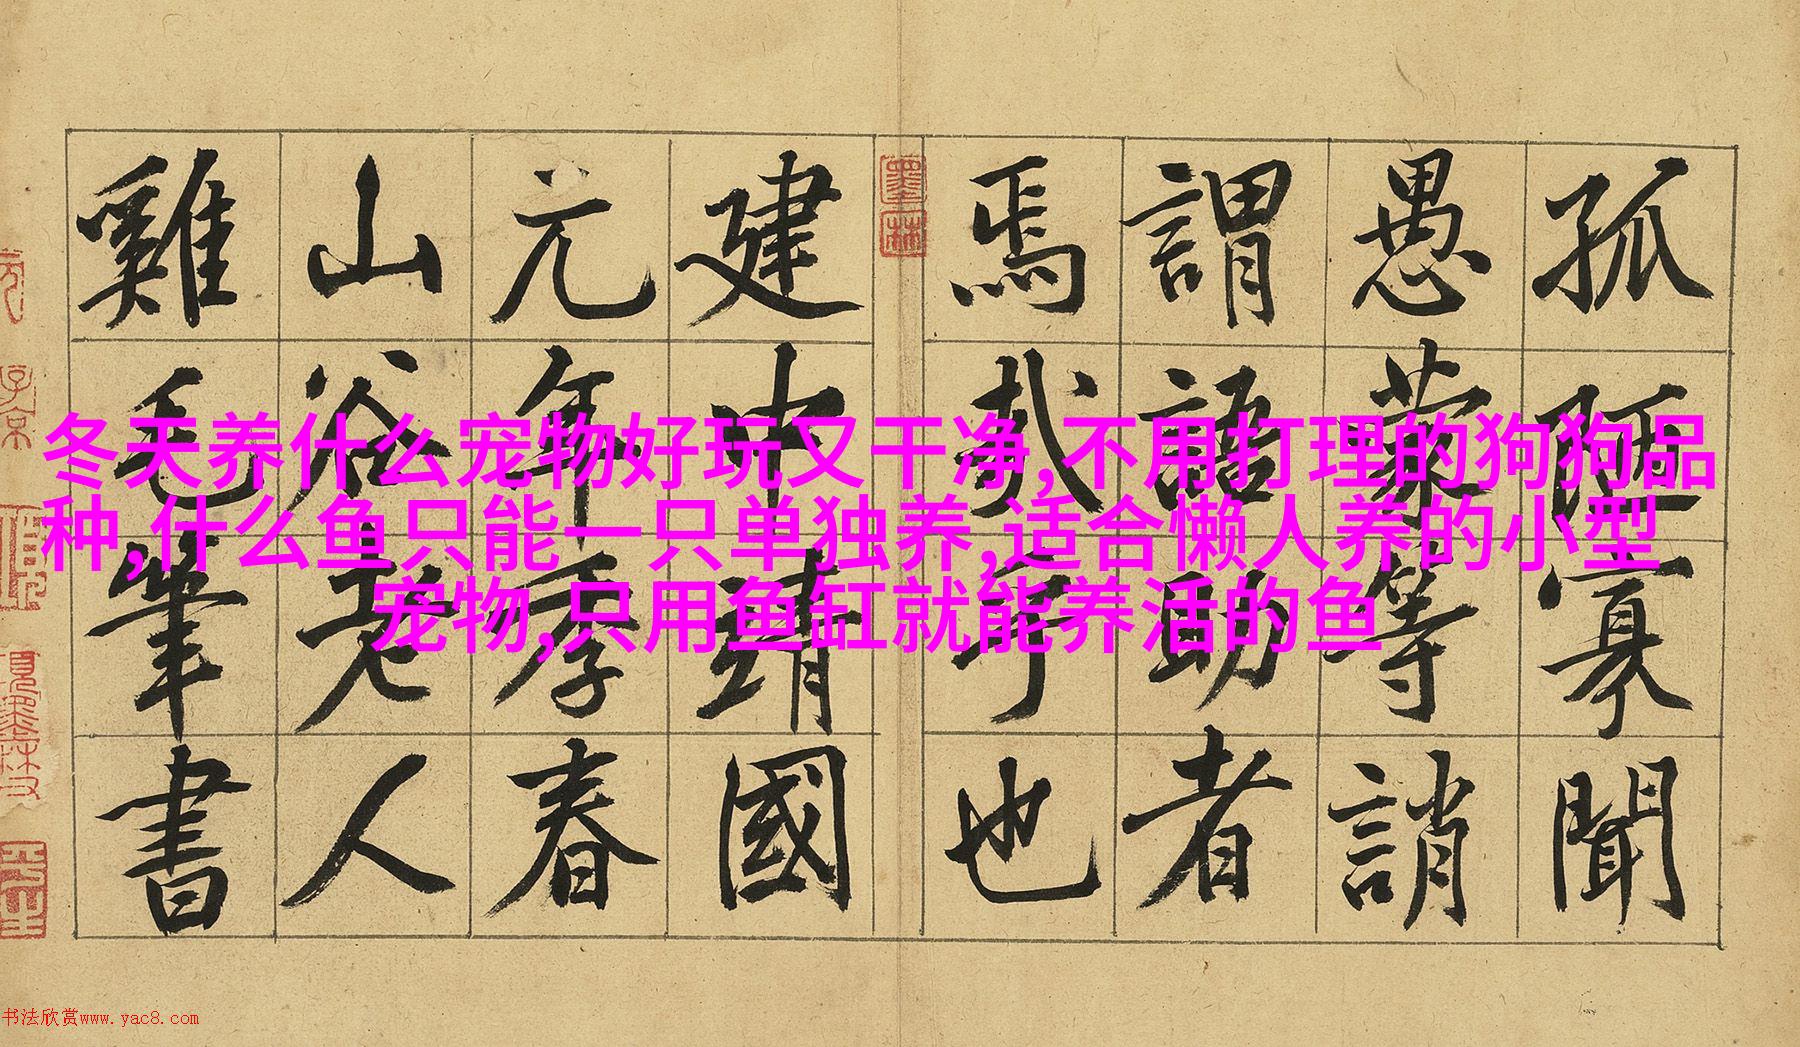 孤陋寡聞
愚蒙等誚
謂語助者
焉哉乎也
墨林
建中靖國
元年季春
山谷老人
雞毛筆書
冬天养什么宠物好玩又干净,不用打理的狗狗品
种,什么鱼只能一只单独养,适合懒人养的小型
宠物,只用鱼缸就能养活的鱼
书法欣赏www.yac8.com